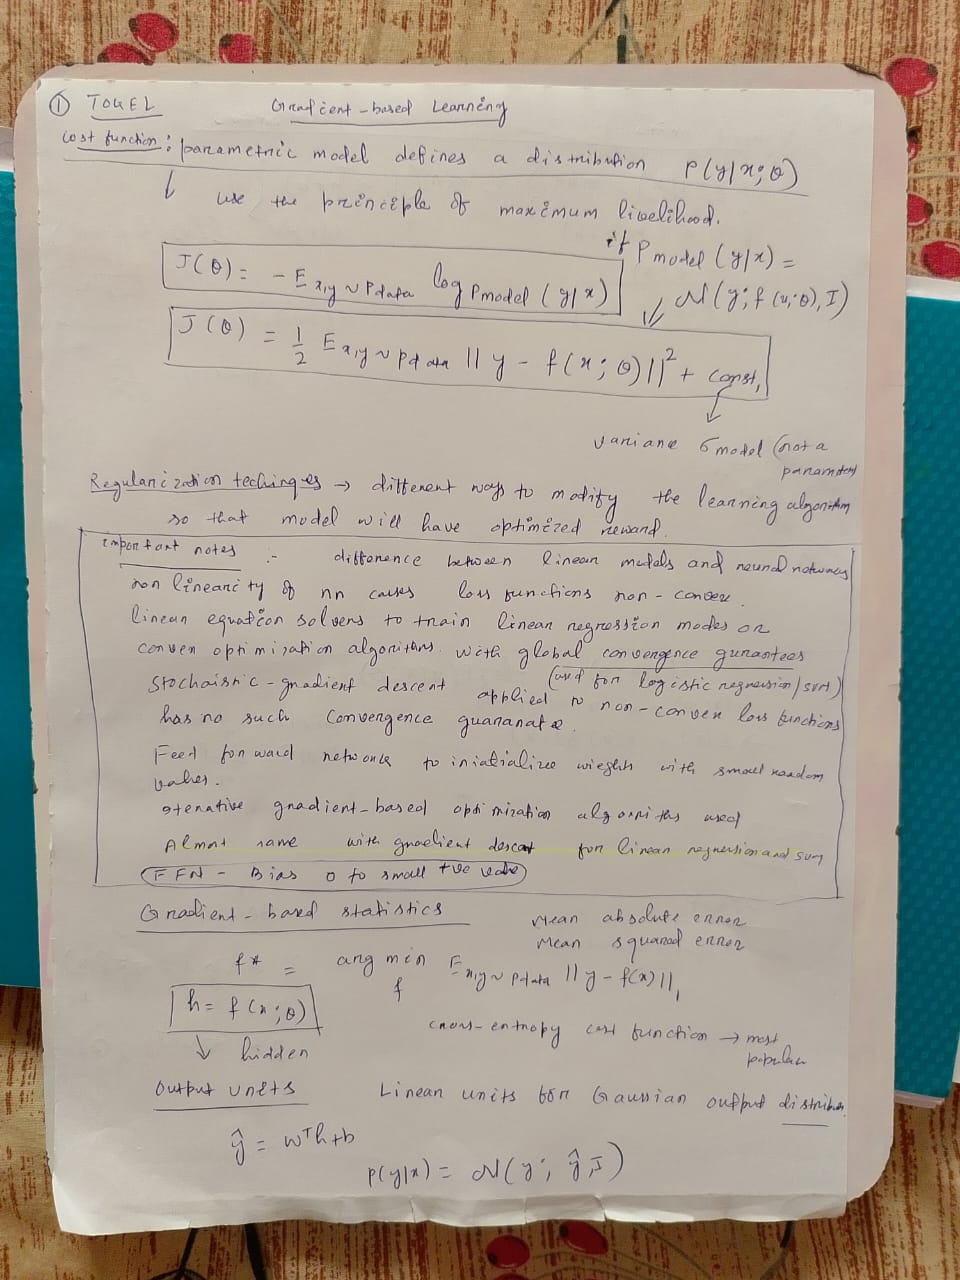 ① TOGEL Gradient-based Learning
Cost function: parametric model defines a distribution P(y|x;θ)
↓ use the principle of maximum livelihood.
if Pmodel (y|x) =
J(θ) = - E x,y~Pdata log Pmodel (y|x)
N(y; f(x;θ), I)
J(θ) = 1/2 E x,y~pdata ||y - f(x;θ)||² + const,
↓
variane σ model (not a
parameter)
Regularization techinqes → different ways to modify the learning algorithm
so that model will have optimized reward.
important notes :- difference between linear models and neural networks
non linearity of nn causes loss functions non-convex.
linear equation solvers to train linear regression modes or
convex optimization algorithms. with global convergence gurantees
(used for logistic regression/svm)
Stochaistic-gradient descent applied to non-convex loss functions
has no such convergence guarantee.
Feed forward networks to iniatialize wieghts with small random
values.
iterative gradient-based optimization algorithms used
Almost same with gradient descent for linear regression and svm
FFN - Bias 0 to small +ve value
Gradient-based statistics Mean absolute error
Mean squared error
f* = arg min f E x,y~pdata ||y - f(x)||₁
h = f(x;θ)
cross-entropy cost function → most
popular
↓ hidden
Output units Linear units for Gaussian output distribu
ŷ = wᵀh+b
p(y|x) = N(y; ŷ, I)